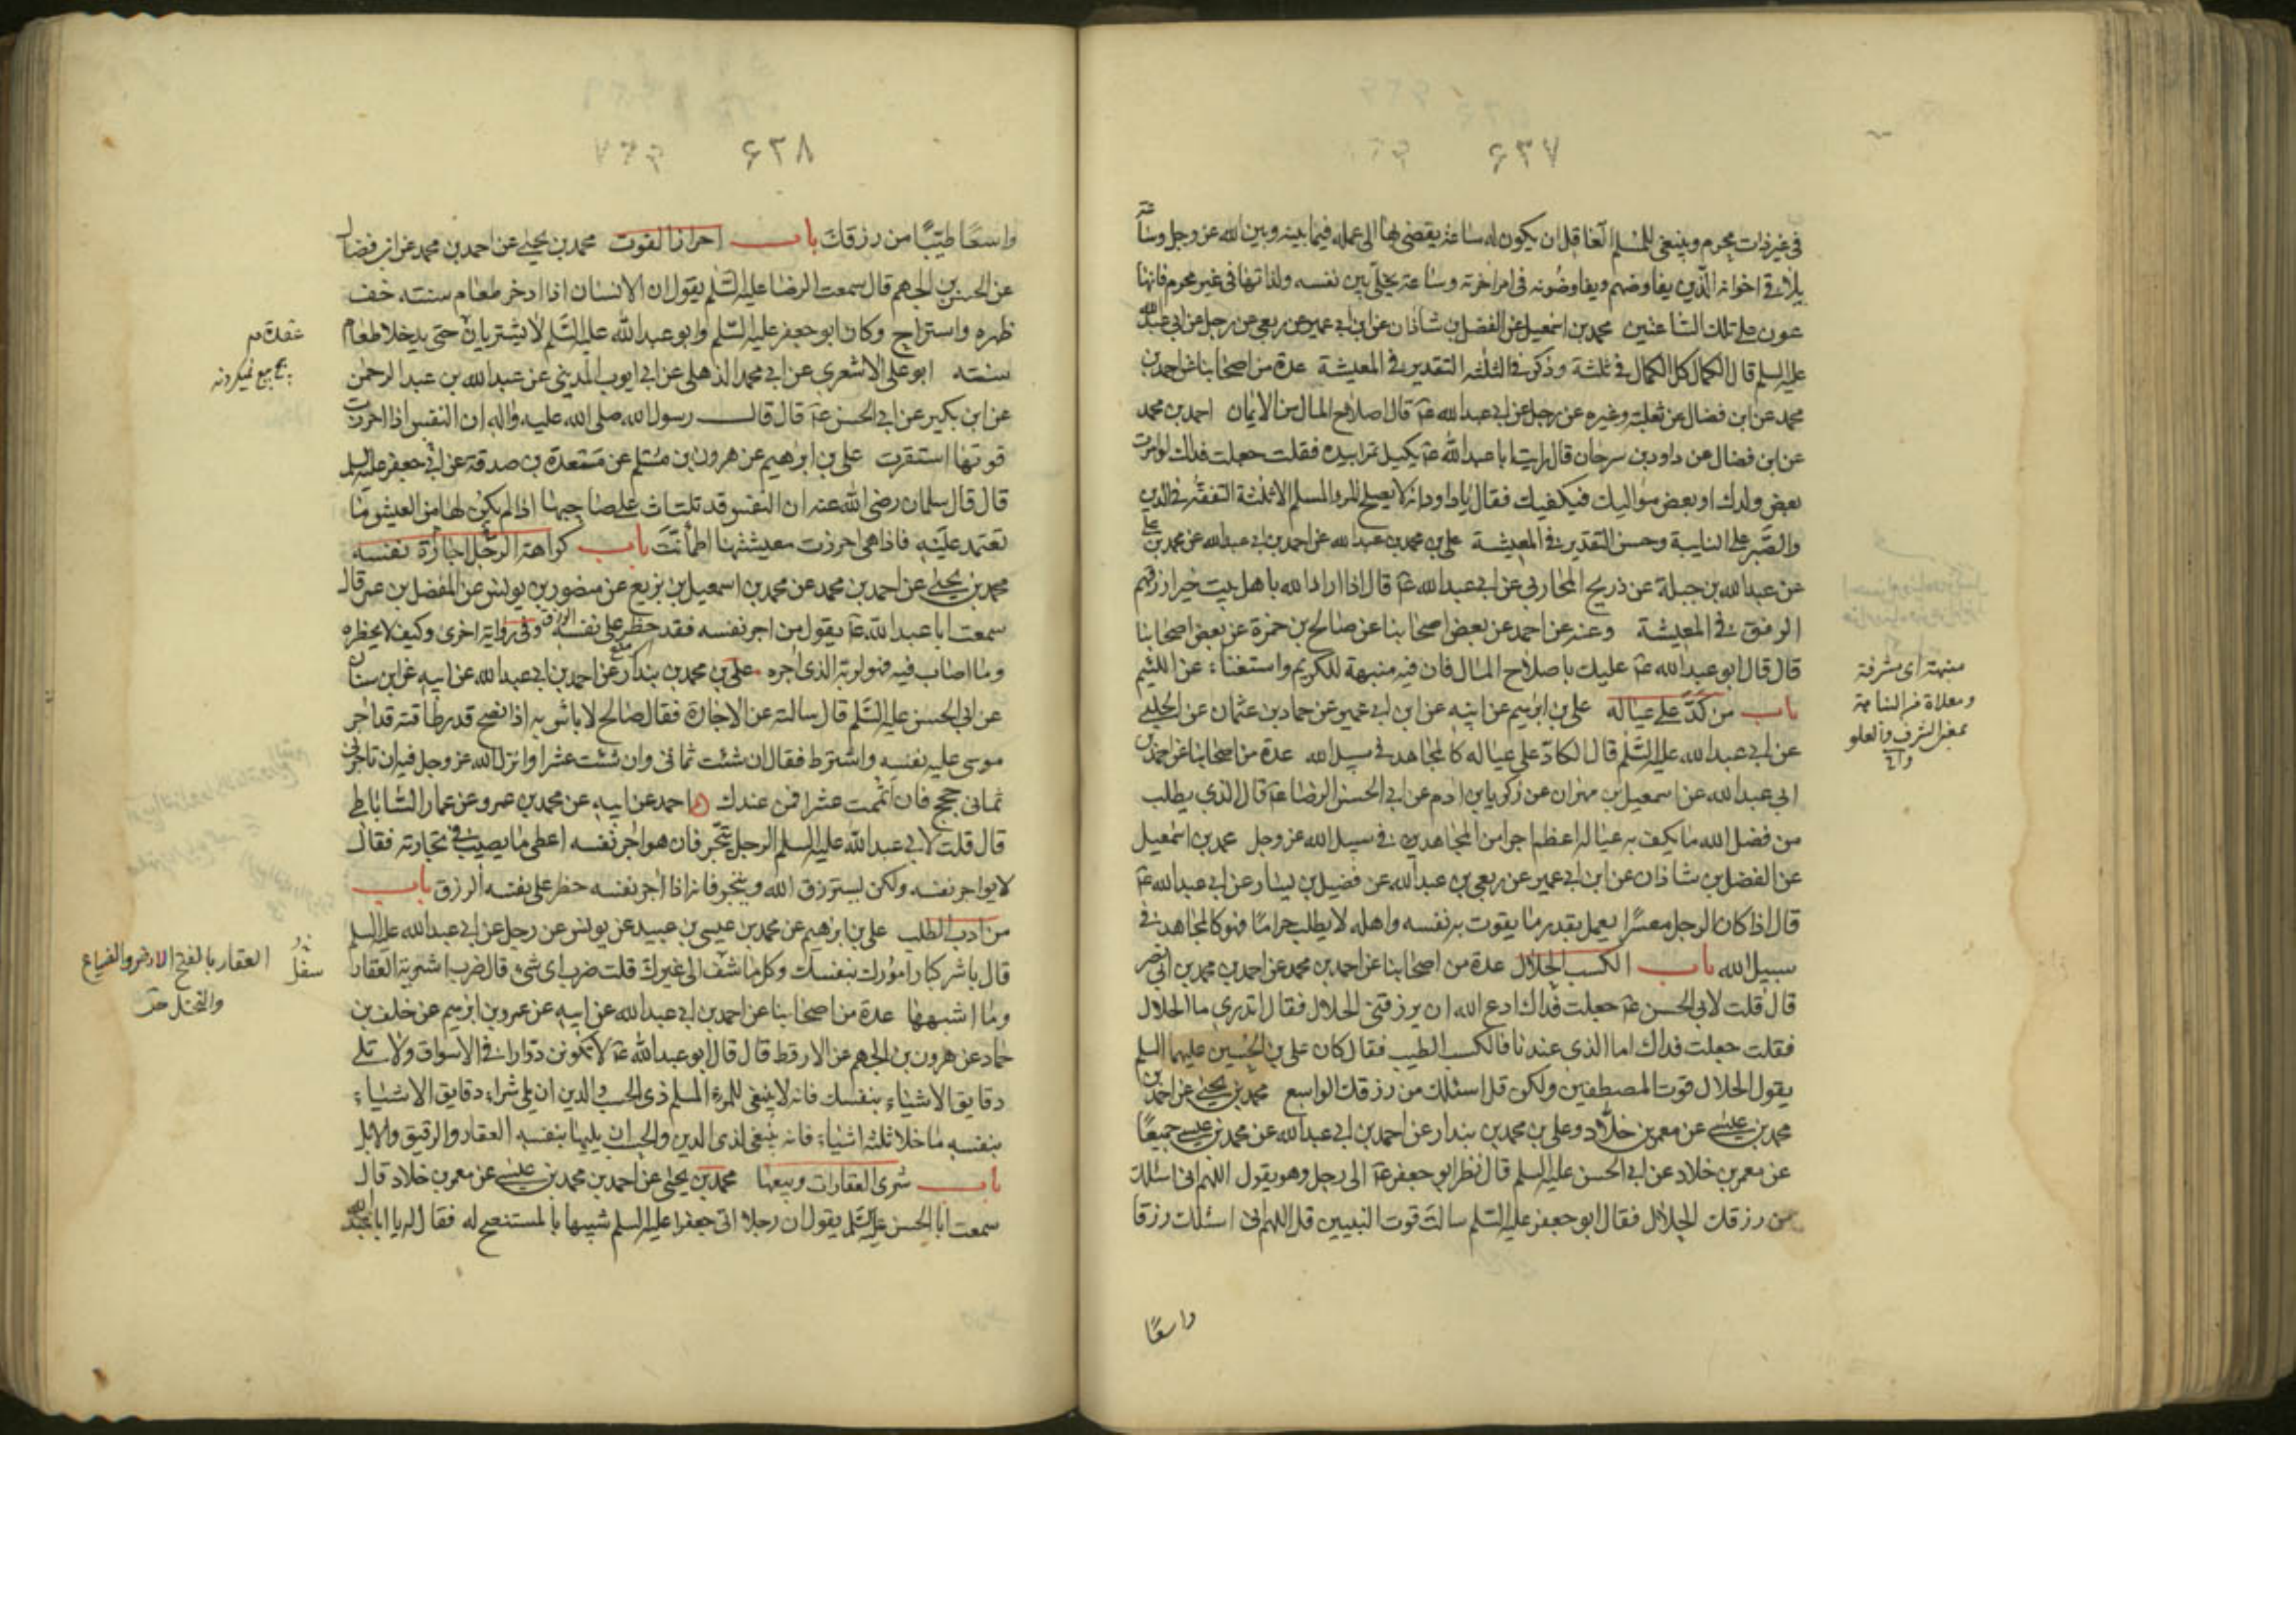 ۶۳۷
فى غير ذات محرم وينبغى للمسلم العاقل ان يكون له ساعة يفضى بها الى عمله فيما بينه وبين الله عز وجل وساعة
يلاقى اخوانه الذين يفاوضهم ويفاوضونه فى امر اخرته وساعة يخلى بين نفسه ولذاتها فى غير محرم فانها
عون على تلك الساعتين محمد بن اسمعيل عن الفضل بن شاذان عن ابن ابى عمير عن ربعى عن رجل عن ابى عبد الله
عليه السلم قال الكمال كل الكمال فى ثلثة وذكر فى الثلثه التقدير فى المعيشة عدة من اصحابنا عن احمد بن
محمد عن ابن فضال عن ثعلبة وغيره عن رجل عن ابى عبد الله عه قال اصلاح المال من الايمان احمد بن محمد
عن ابن فضال عن داود بن سرحان قال رايت ابا عبد الله عه يكيل تمرا بيده فقلت جعلت فداك لو امرت
بعض ولدك او بعض مواليك فيكفيك فقال يا داود انه لا يصلح المرء المسلم الا ثلثة التفقه فى الدين
والصبر على النايبة وحسن التقدير فى المعيشة على بن محمد بن عبد الله عن احمد بن ابى عبد الله عن محمد بن على
عن عبد الله بن جبلة عن ذريح المحاربى عن ابى عبد الله عه قال اذا اراد الله باهل بيت خيرا رزقهم
الرفق فى المعيشة وعنه عن احمد عن بعض اصحابنا عن صالح بن حمزة عن بعض اصحابنا
قال قال ابو عبد الله عه عليك باصلاح المال فان فيه منبهة للكريم واستغناء عن اللئيم
باب من كد على عياله على بن ابرهيم عن ابيه عن ابن ابى عمير عن حماد بن عثمان عن الحلبى
عن ابى عبد الله عليه السلم قال الكاد على عياله كالمجاهد فى سبيل الله عدة من اصحابنا عن احمد بن
ابى عبد الله عن اسمعيل بن مهران عن زكريا بن ادم عن ابى الحسن الرضا عه قال الذى يطلب
من فضل الله ما يكف به عياله اعظم اجرا من المجاهدين فى سبيل الله عز وجل محمد بن اسمعيل
عن الفضل بن شاذان عن ابن ابى عمير عن ربعى بن عبد الله عن فضيل بن يسار عن ابى عبد الله عه
قال اذا كان الرجل معسرا يعمل بقدر ما يقوت به نفسه واهله لا يطلب حراما فهو كالمجاهد فى
سبيل الله باب الكسب الحلال عدة من اصحابنا عن احمد بن محمد عن احمد بن محمد بن ابى نصر
قال قلت لابى الحسن عه جعلت فداك ادع الله ان يرزقنى الحلال فقال اتدرى ما الحلال
فقلت جعلت فداك اما الذى عندنا فالكسب الطيب فقال كان على بن الحسين عليهما السلم
يقول الحلال قوت المصطفين ولكن قل اسئلك من رزقك الواسع محمد بن يحيى عن احمد بن
محمد بن عيسى عن معمر بن خلاد وعلى بن محمد بن بندار عن احمد بن ابى عبد الله عن محمد بن عيسى جميعا
عن معمر بن خلاد عن ابى الحسن عليه السلم قال نظر ابو جعفر عه الى رجل وهو يقول اللهم انى اسئلك
من رزقك الحلال فقال ابو جعفر عليه السلم سالت قوت النبيين قل اللهم انى اسئلك رزقا
واسعا
منبهة اى مشرفة
ومعلاة من النباهة
بمعنى الشرف والعلو
۶۳۸
واسعا طيبا من رزقك باب احراز القوت محمد بن يحيى عن احمد بن محمد عن ابن فضال
عن الحسن بن الجهم قال سمعت الرضا عليه السلم يقول ان الانسان اذا ادخر طعام سنته خف
ظهره واستراح وكان ابو جعفر عليه السلم وابو عبد الله عليه السلم لا يشتريان حتى يدخلا طعام
سنته ابو على الاشعرى عن ابى محمد الذهلى عن ابى ايوب المدينى عن عبد الله بن عبد الرحمن
عن ابن بكير عن ابى الحسن عه قال قال رسول الله صلى الله عليه واله ان النفس اذا احرزت
قوتها استقرت على بن ابرهيم عن هرون بن مسلم عن مسعدة بن صدقة عن ابى جعفر عليه السلم
قال قال سلمان رضى الله عنه ان النفس قد تلتاث على صاحبها اذا لم يكن لها من العيش ما
تعتمد عليه فاذا هى احرزت معيشتها اطمأنت باب كراهة الرجل اجارة نفسه
محمد بن يحيى عن احمد بن محمد عن محمد بن اسمعيل بن بزيع عن منصور بن يونس عن المفضل بن عمر قال
سمعت ابا عبد الله عه يقول من اجر نفسه فقد حظر على نفسه الرزق وفى رواية اخرى وكيف لا يحظره
وما اصاب فيه فهو لربه الذى اجره على بن محمد بن بندار عن احمد بن ابى عبد الله عن ابيه عن ابن سنان
عن ابى الحسن عليه السلم قال سالته عن الاجارة فقال صالح لا باس به اذا نصح قدر طاقته قد اجر
موسى عليه نفسه واشترط فقال ان شئت ثمانى وان شئت عشرا وانزل الله عز وجل فيه ان تاجرنى
ثمانى حجج فان اتممت عشرا فمن عندك احمد عن ابيه عن محمد بن عمرو عن عمار الساباطى
قال قلت لابى عبد الله عليه السلم الرجل يتجر فان هو اجر نفسه اعطى ما يصيب فى تجارته فقال
لا يواجر نفسه ولكن ليسترزق الله ويتجر فانه اذا اجر نفسه حظر على نفسه الرزق باب
من ادب الطلب على بن ابرهيم عن محمد بن عيسى بن عبيد عن يونس عن رجل عن ابى عبد الله عليه السلم
قال باشر كبار امورك بنفسك وكل ما شف الى غيرك قلت ضرب اى شئ قال ضرب اشرية العقار
وما اشبهها عدة من اصحابنا عن احمد بن ابى عبد الله عن ابيه عن عمرو بن ابرهيم عن خلف بن
حماد عن هرون بن الجهم عن الارقط قال قال ابو عبد الله عه لا تكونن دوارا فى الاسواق ولا تلى
دقايق الاشياء بنفسك فانه لا ينبغى للمرء المسلم ذى الحسب والدين ان يلى شراء دقايق الاشياء
بنفسه ما خلا ثلثه اشياء فانه ينبغى لذى الدين والحسب ان يليها بنفسه العقار والرقيق والابل
باب شرى العقارات وبيعها محمد بن يحيى عن احمد بن محمد بن عيسى عن معمر بن خلاد قال
سمعت ابا الحسن عليه السلم يقول ان رجلا اتى جعفرا عليه السلم شبيها بالمستنصح له فقال له يا ابا عبد الله
عقدة م
سفل
العقار بالفتح الارض والضياع
والنخل